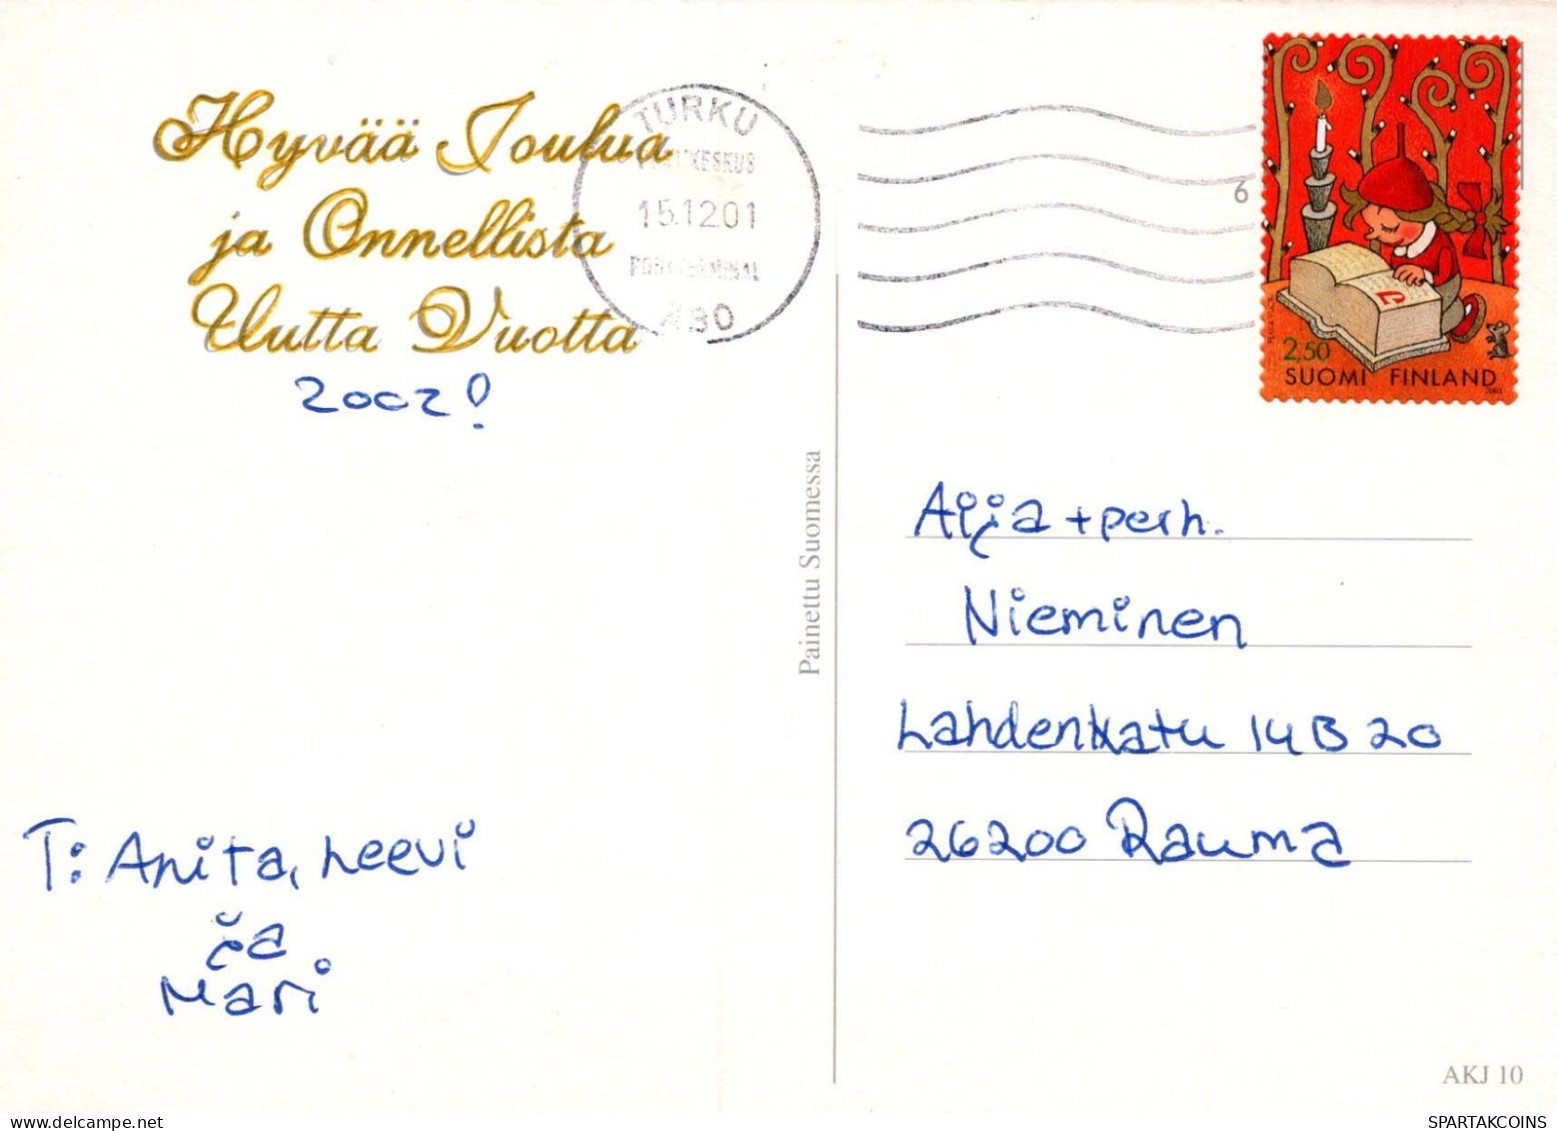 Hyvää Joulua
ja Onnellista
Uutta Vuotta
2002!
T: Anita, Leevi
ja
Mari
TURKU
POSTIKESKUS
15.12.01
POSTTERMINAL
ÅBO
6
2,50
SUOMI FINLAND
2001
Painettu Suomessa
Aija + perh.
Nieminen
Lahdenkatu 14 B 20
26200 Rauma
AKJ 10
SPARTAKCOINS